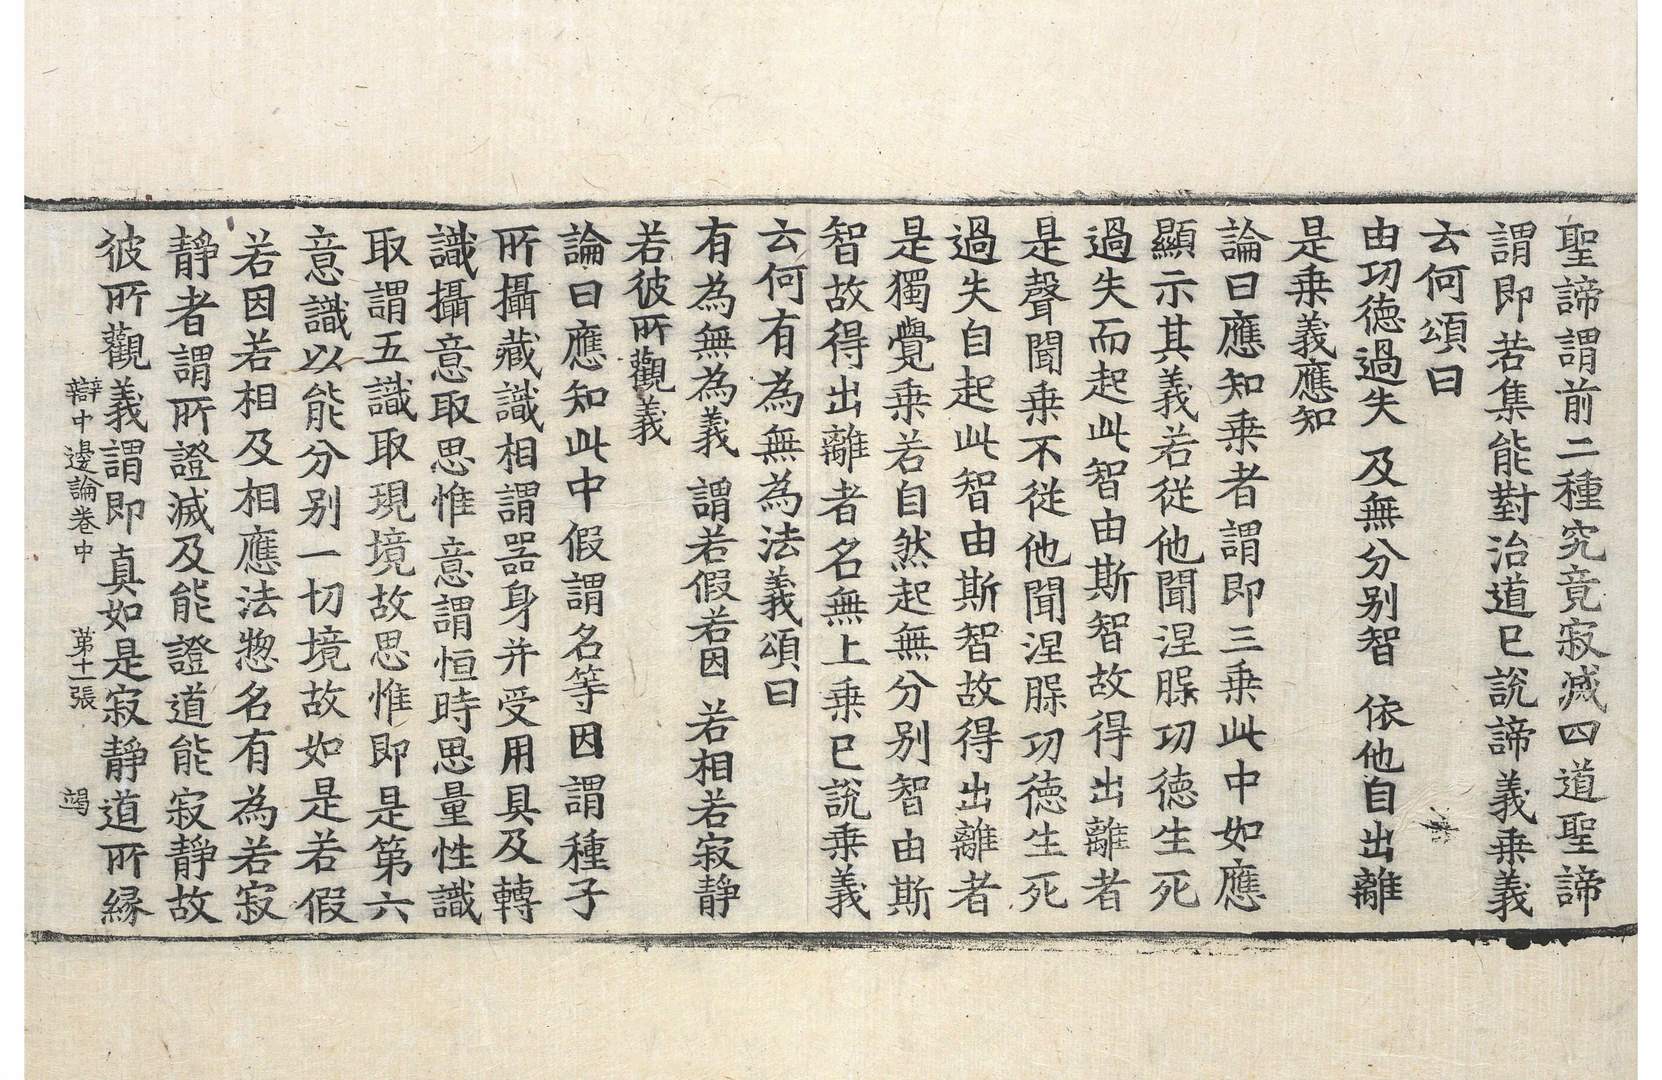 聖諦謂前二種究竟寂滅四道聖諦
謂即若集能對治道已說諦義乗義
云何頌曰
由功德過失　及無分別智　依他自出離
是乗義應知
論曰應知乗者謂即三乗此中如應
顯示其義若從他聞涅膎功德生死
過失而起此智由斯智故得出離者
是聲聞乗不從他聞涅膎功德生死
過失自起此智由斯智故得出離者
是獨覺乗若自然起無分別智由斯
智故得出離者名無上乗已說乗義
云何有為無為法義頌曰
有為無為義　謂若假若因　若相若寂靜
若彼所觀義
論曰應知此中假謂名等因謂種子
所攝藏識相謂器身并受用具及轉
識攝意取思惟意謂恒時思量性識
取謂五識取現境故思惟即是第六
意識以能分別一切境故如是若假
若因若相及相應法惣名有為若寂
靜者謂所證滅及能證道能寂靜故
彼所觀義謂即真如是寂靜道所縁
辯中邊論卷中　第十一張　竭